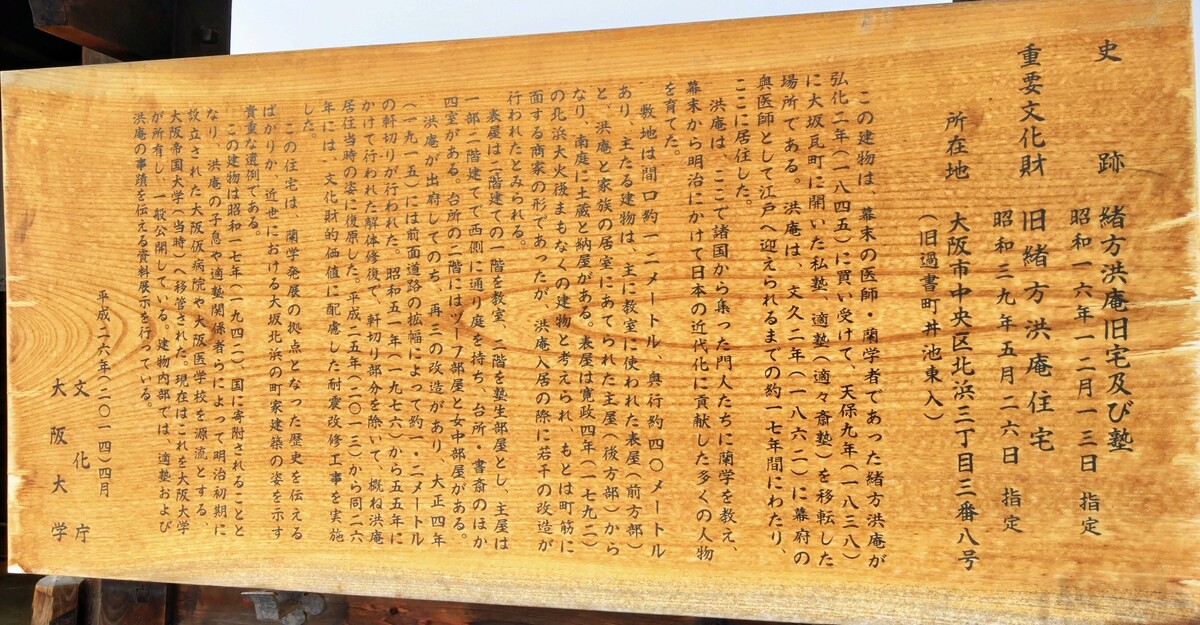 史跡 緒方洪庵旧宅及び塾
昭和一六年一二月一三日 指定
重要文化財 旧緒方洪庵住宅
昭和三九年五月二六日 指定
所在地 大阪市中央区北浜三丁目三番八号
(旧過書町丼池東入)
この建物は、幕末の医師・蘭学者であった緒方洪庵が
弘化二年(一八四五)に買い受けて、天保九年(一八三八)
に大坂瓦町に開いた私塾、適塾(適々斎塾)を移転した
場所である。洪庵は、文久二年(一八六二)に幕府の
奥医師として江戸へ迎えられるまでの約一七年間にわたり、
ここに居住した。
洪庵は、ここで諸国から集った門人たちに蘭学を教え、
幕末から明治にかけて日本の近代化に貢献した多くの人物
を育てた。
敷地は間口約一二メートル、奥行約四〇メートル
あり、主たる建物は、主に教室に使われた表屋(前方部)
と、洪庵と家族の居室にあてられた主屋(後方部)から
なり、南庭に土蔵と納屋がある。表屋は寛政四年(一七九二)
の北浜大火後まもなくの建物と考えられ、もとは町筋に
面する商家の形であったが、洪庵入居の際に若干の改造が
行われたとみられる。
表屋は二階建ての一階を教室、二階を塾生部屋とし、主屋は
一部二階建てで西側に通り庭を持ち、台所・書斎のほか
四室がある。台所の二階にはヅーフ部屋と女中部屋がある。
洪庵が出府してのち、再三の改造があり、大正四年
(一九一五)には前面道路の拡幅によって約一・二メートル
の軒切りが行われた。昭和五一年(一九七六)から五五年に
かけて行われた解体修復で、軒切り部分を除いて、概ね洪庵
居住当時の姿に復原した。平成二五年(二〇一三)から同二六
年には、文化財的価値に配慮した耐震改修工事を実施
した。
この住宅は、蘭学発展の拠点となった歴史を伝える
ばかりか、近世における大坂北浜の町家建築の姿を示す
貴重な遺例である。
この建物は昭和一七年(一九四二)、国に寄附されることと
なり、洪庵の子息や適塾関係者らによって明治初期に
設立された大阪仮病院や大阪医学校を源流とする、
大阪帝国大学(当時)へ移管された。現在はこれを大阪大学
が所有し、一般公開している。建物内部では、適塾および
洪庵の事蹟を伝える資料展示を行っている。
平成二六年(二〇一四)四月
文化庁
大阪大学